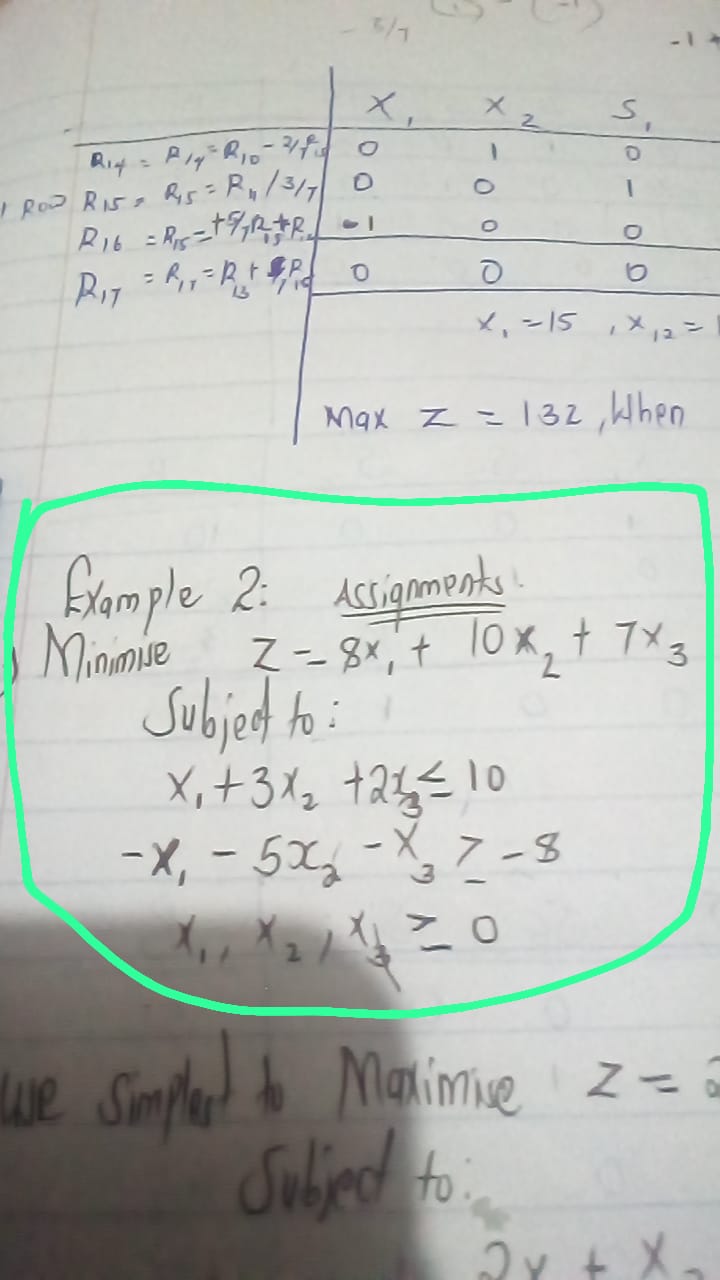 - 5/7
-1
X₁ X₂ S₁
R14 = R14 = R10 - 2/7 0 1 0
1 Row R15 = R15 = R11 / 3/7 0 0 1
R16 = R15 = +5/7 R15 + R -1 0 0
R17 = R17 = R13 + R 0 0 0
x₁ = 15 , x₁₂ = 1
Max Z = 132 , When
Example 2: Assignments.
Minimise Z = 8x₁ + 10x₂ + 7x₃
Subject to:
x₁ + 3x₂ + 2x₃ ≤ 10
-x₁ - 5x₂ - x₃ ≥ -8
x₁, x₂, x₃ ≥ 0
use simplex to Maximise Z = 2
Subject to:
2x + x₂